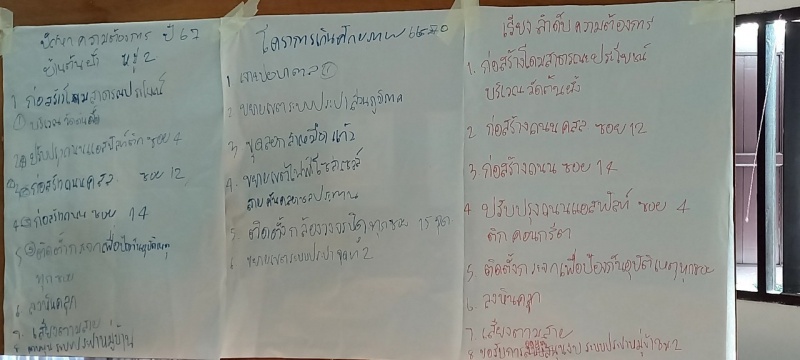 ปัญหา ความต้องการ ปี 67
บ้านต้นผึ้ง หมู่ 2
1 ก่อสร้างโดมสาธารณะประโยชน์
บริเวณ วัดต้นผึ้ง
ปรับปรุงถนนแอสฟัลท์ติก ซอย 4
ก่อสร้างถนน คสล ซอย 12
ก่อสร้างถนน ซอย 14
5 ติดตั้งกระจกเพื่อป้องกันอุบัติเหตุ
ทุกซอย
6 ลงหินคลุก
7 เสียงตามสาย
8 ระบบประปาหมู่บ้าน
โครงการเกินศักยภาพ
1 เจาะบ่อบาดาล
2 ขยายเขตระบบประปาส่วนภูมิภาค
3 ขุดลอกลำเหมืองแก้ว
4. ขยายเขตไฟฟ้าโซล่าเซลล์
สายคันคลองชลประทาน
5. ติดตั้งกล้องวงจรปิดทุกซอย 15 จุด
6 ขยายเขตระบบประปา จุดที่ 2
เรียงลำดับความต้องการ
1. ก่อสร้างโดมสาธารณะประโยชน์
บริเวณวัดต้นผึ้ง
2 ก่อสร้างถนน คสล ซอย 12
3 ก่อสร้างถนน ซอย 14
4 ปรับปรุงถนนแอสฟัลท์ ซอย 4
ติกคอนกรีต
5 ติดตั้งกระจกเพื่อป้องกันอุบัติเหตุทุกซอย
6 ลงหินคลุก
7 เสียงตามสาย
8 ขอรับการสนับสนุนงบระบบประปาหมู่บ้าน 2